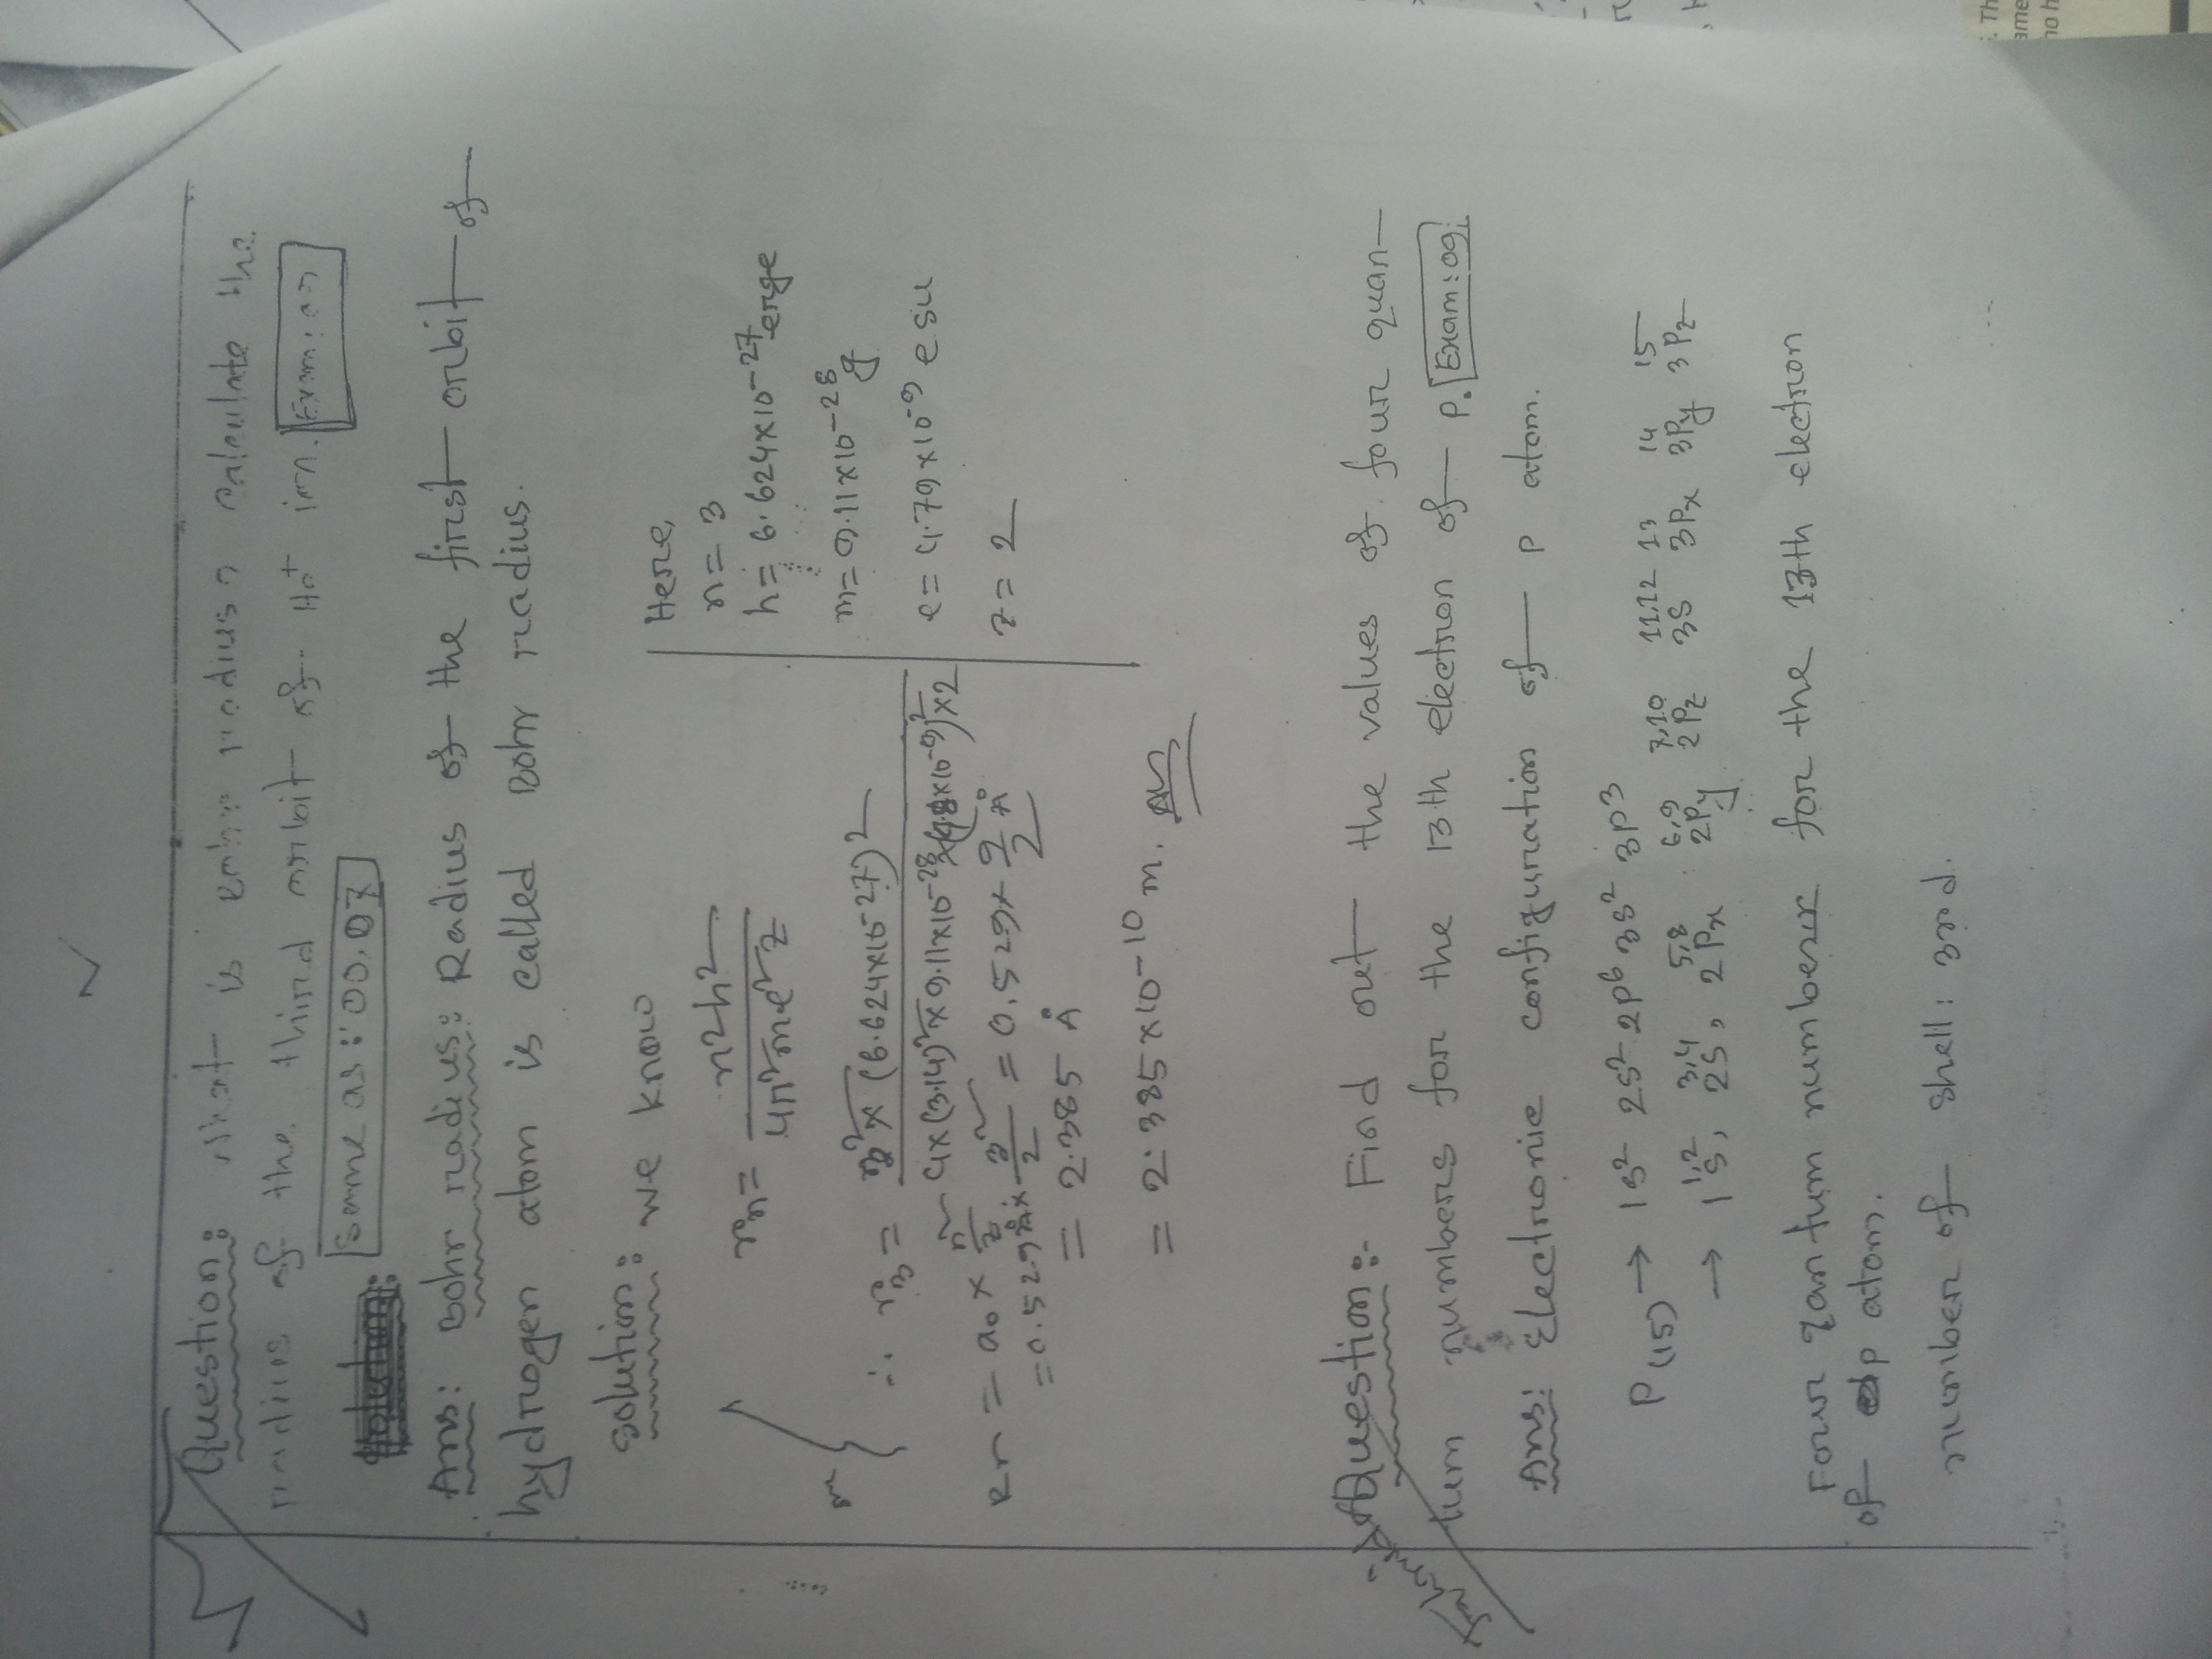 Question: What is Bohr radius? calculate the
radius of the third orbit of He+ ion.
Same as: 00,07
Ans: Bohr radius: Radius of the first orbit of
hydrogen atom is called Bohr radius.
Solution: we know
rn = n²h² / 4π²me²z
∴ r3 = 3² × (6.624×10-27)2 / 4×(3.14)²×9.11×10-28×(4.8×10-9)2×2
rn = a0 × n²/z
= 0.529 Å × 3²/2 = 0.529 × 9/2 Å
= 2.385 Å
= 2.385×10-10 m. Ans
Here,
n = 3
h = 6.624×10-27 erge
m = 9.11×10-28 g
e = 4.79×10-9 esu
z = 2
Question:- Find out the values of four quan-
tum numbers for the 13th electron of P. Exam: 09
Ans: Electronic configuration of P atom.
P(15) → 1s2 2s2 2p6 3s2 3p3
1,2 3,4 5,8 6,9 7,10 11,12 13 14 15
→ 1s, 2s, 2Px 2Py 2Pz 3s 3Px 3Py 3Pz
Four qantum number for the 13th electron
of P atom.
number of shell: 3rd.
. Th
ame
no h